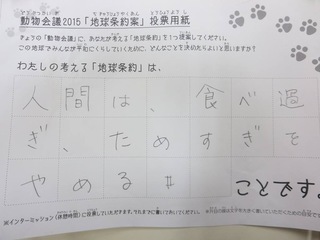 動物会議2015「地球条約案」投票用紙
きょうの「動物会議」に、あなたが考える「地球条約」を1つ提案してください。
この地球でみんなが平和にくらしていくために、どんなことを決めたらよいと思いますか?
わたしの考える「地球条約」は、
人間は、食べ過
ぎ、ためすぎを
やめる#
ですとこ
※インターミッション(休憩時間)に投票していただきます。それまでに書いておいてください。